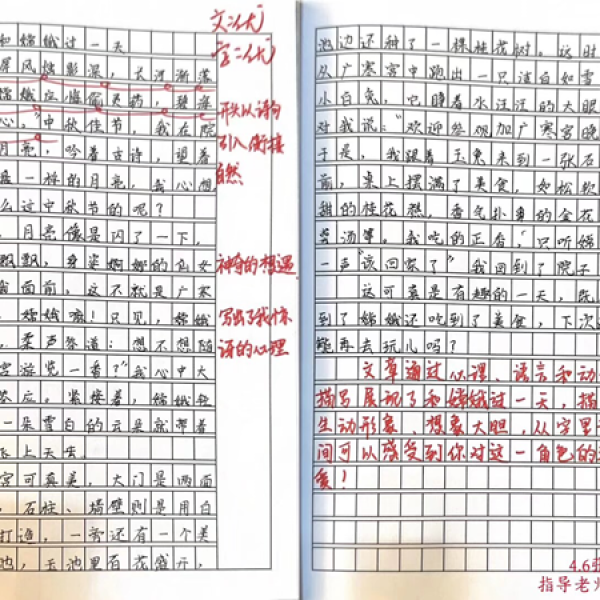 和嫦娥过一天
屏风烛影深，长河渐落
嫦娥应悔偷灵药，碧海
心。"中秋佳节，我在院
月亮，吟着古诗，望着
是一样的月亮，我心想
么过中秋节的呢？
，月亮像是闪了一下，
飘飘，身姿婀娜的仙女
我面前，这不就是广寒
，嫦娥嘛！只见，嫦娥
，柔声答道：想不想随
宫游览一番？"我心中大
答应。紧接着，嫦娥轻
一朵雪白的云朵就带着
飞上天生
宫可真美，大门是两面
，石柱、墙壁则是用白
打造，一旁还有一个美
池，天池里百花盛开，
文：优
字：优
开头以诗句
引入衔接
自然
神奇的想遇
写出了我惊
讶的心理
池边还种了一棵桂花树，这时
从广寒宫中跑出一只洁白如雪
小白兔，它睁着水汪汪的大眼
对我说："欢迎参加广寒宫晚
于是，我跟着玉兔来到一张石
前，桌上摆满了美食，如松软
甜的桂花糕，香气扑鼻的金花
汤等。我吃的正香，只听嫦
一声"该回家了"我回到了院子
这可真是有趣的一天，既
到了嫦娥还吃到了美食，下次
能再去玩儿吗？
文章通过心理、语言和动
描写展现了和嫦娥过一天，描
生动形象、想象大胆，从字里
间可以感受到你对这一角色的
爱！
4.6张
指导老师